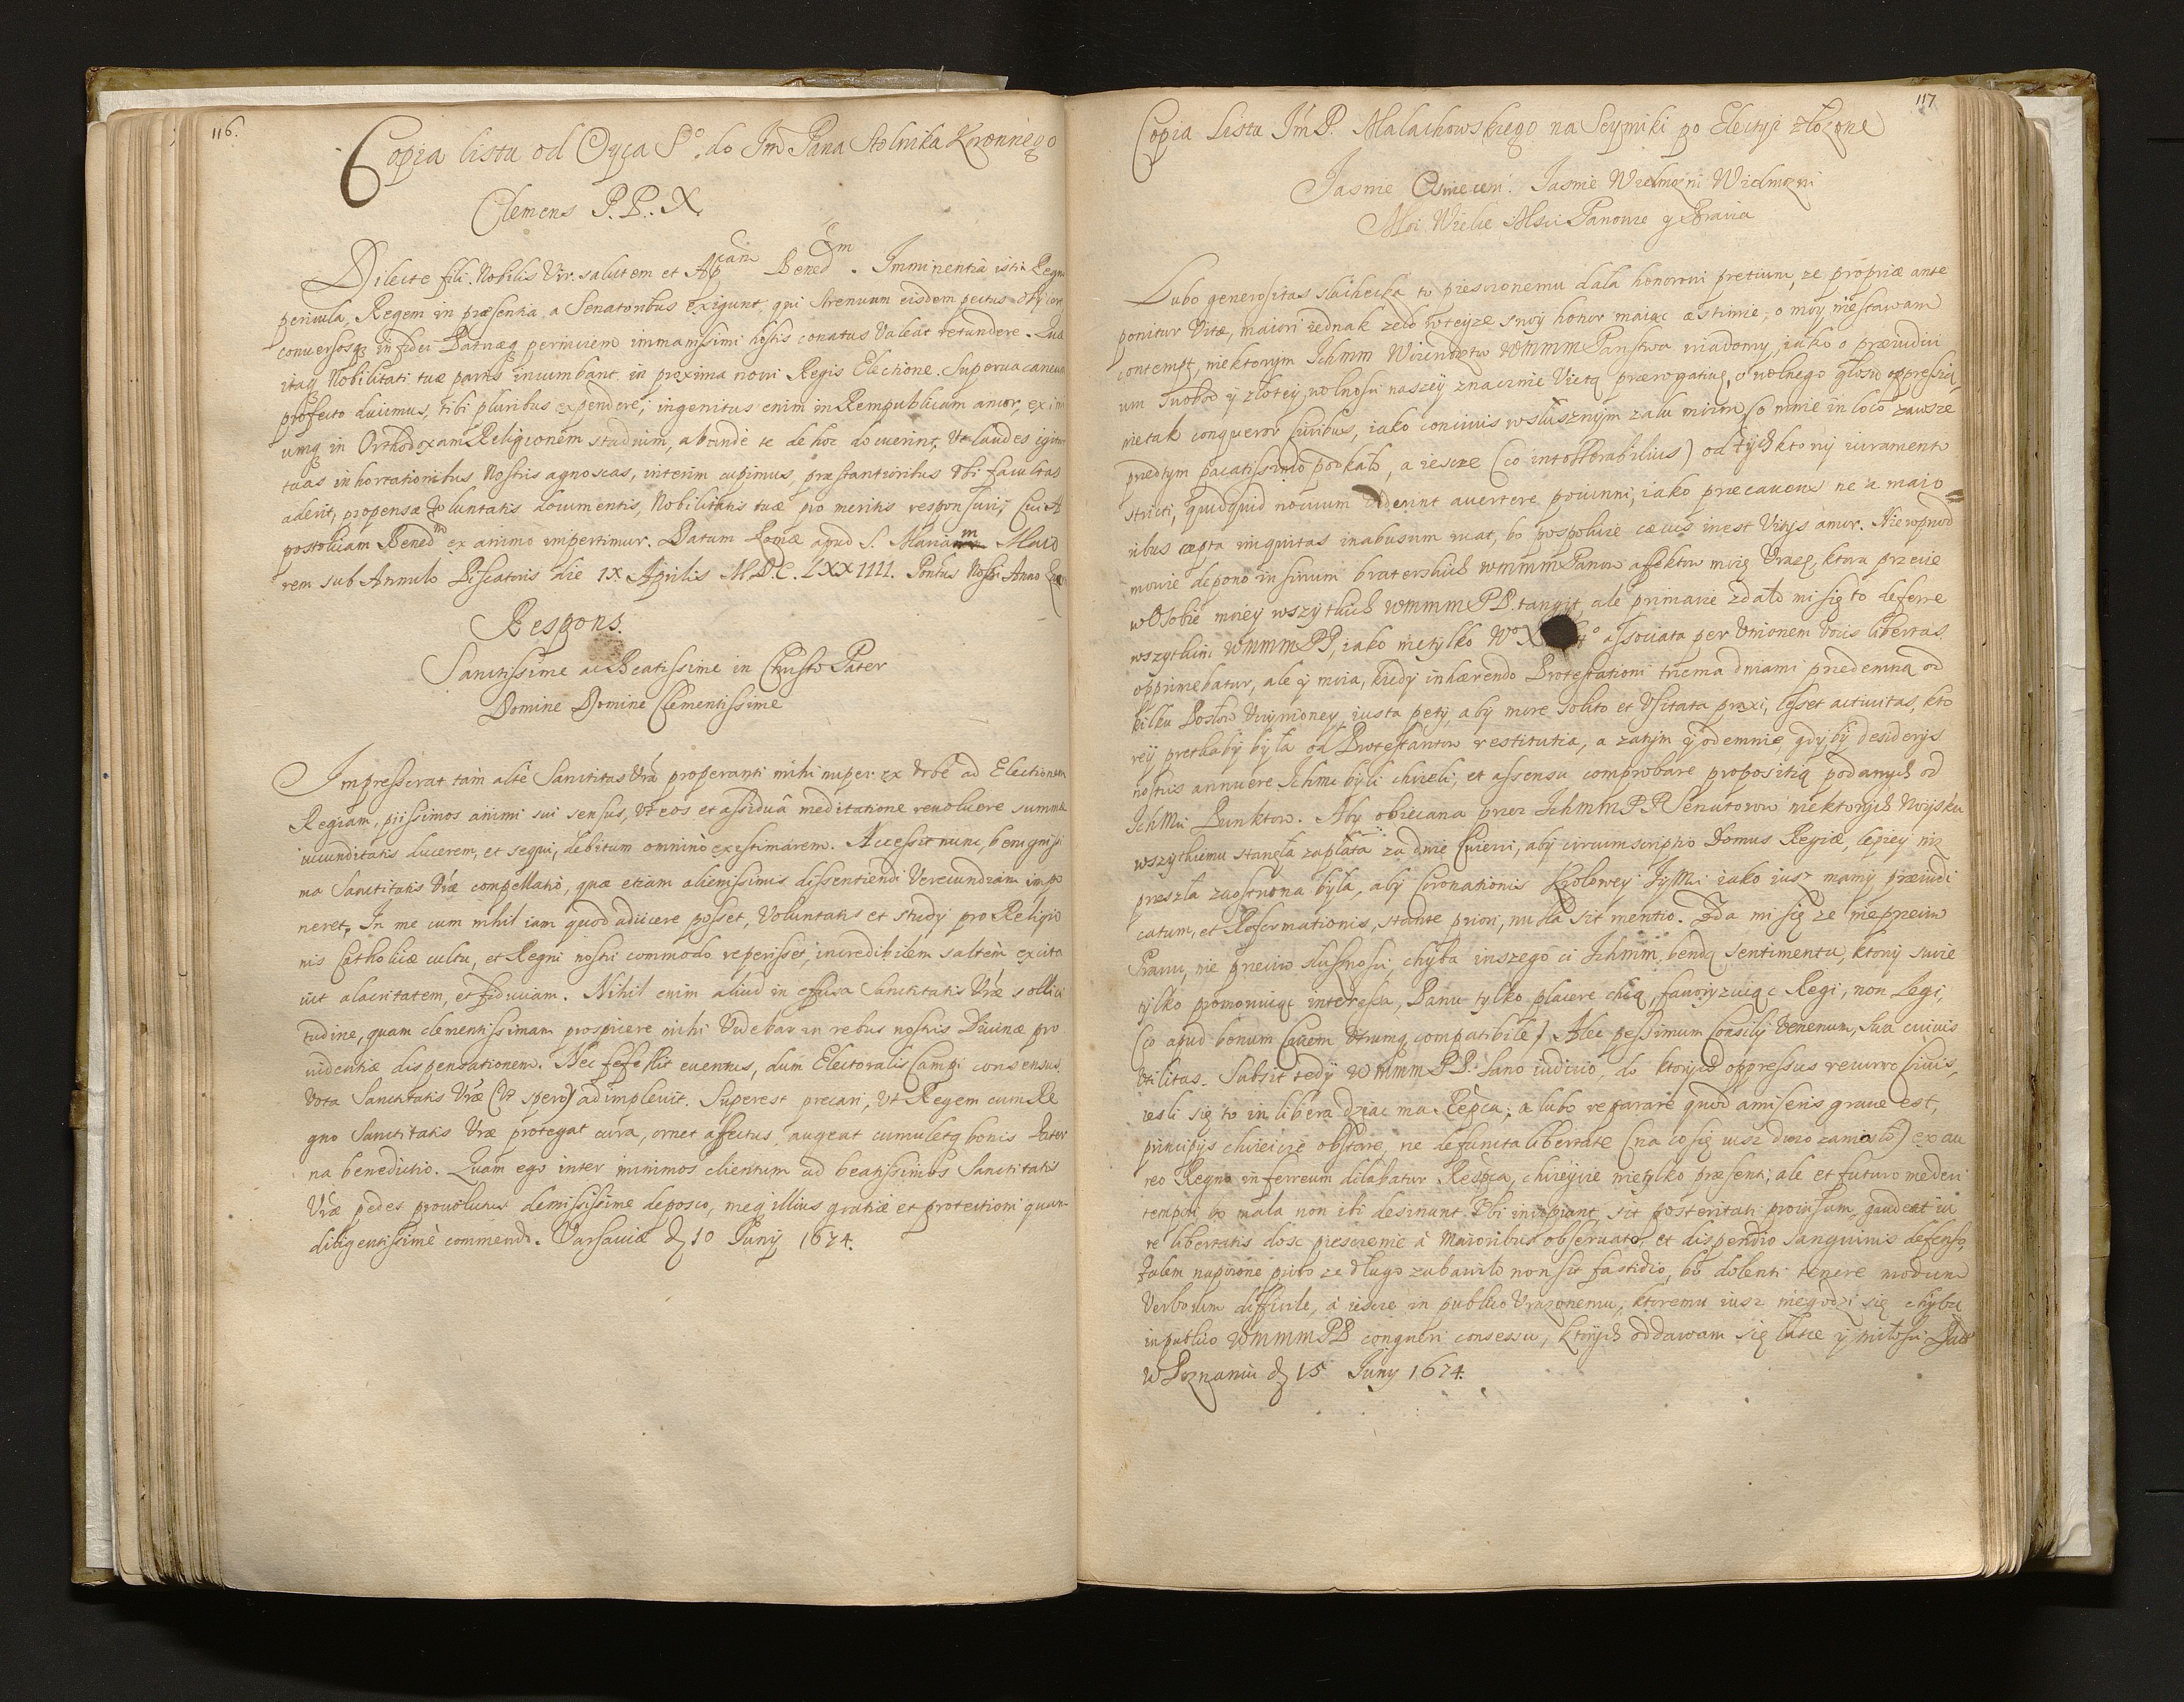 116.
Copia listu od Oyca S°. do Jm̃ Pana Stolnika Koronnego
Clemens P. P. X.
Dilecte fili. Nobilis Vir. salutem et Ap̃cam Bened̃m. Imminentia istia Regni
pericula, Regem in præsentia, a Senatoribus exigunt, qui strenuum eisdem pectus
conuersosq; in fidei Patriæq; perniciem immanissimi hostis conatus Valeat retundere. Quæ
itaq; Nobilitati tuæ partis incumbant in proxima noui Regis Electione. Superuacaneum
profecto duximus, tibi pluribus expendere; ingenitus enim in Rempublicam amor, exim
iumq; in Orthodoxam Religionem studium, abunde te de hoc docuerint, Vt laudes igitur
tuas in hortationibus Nostris agnoscas, interim cupimus, præstantioribus Vbi facultas
aderit, propensæ Voluntatis documentis, Nobilitatis tuæ pro meritis responsuri, Cui A
postolicam Bened̃m ex animo impertimur. Datum Romæ apud S. Mariam Maio
rem sub Annulo Piscatoris die IX Aprilis M.D.C. LXXIIII. Pontus Nostri Anno
Respons.
Sanctissime ac Beatissime in Christo Pater
Domine Domine Clementissime
Impresserat tam altè Sanctitas Vrã properanti mihi nuper ex Vrbe ad Electionem
Regiam, piissimos animi sui sensus, Vt eos et assiduâ meditatione reuoluere summæ
iucunditatis ducerem, et sequi, debitum omnino existimarem. Accessit nunc, benignissi
ma Sanctitatis Vræ compellatio, quæ etiam alienissimis dissentiendi Verecundiam impo
neret, In me cum nihil iam quod adiicere posset, Voluntatis et studij pro Religio
nis Catholicæ cultu, et Regni nostri commodo reperisset, incredibilem saltem excita
uit alacritatem, et fiduciam. Nihil enim aliud in effusa Sanctitatis Vræ sollici
tudine, quam clementissimam prospicere mihi Videbar in rebus nostris Diuinæ pro
uidentiæ dispensationem. Nec fefellit euentus, dum Electoralis Campi consensus
Vota Sanctitatis Vræ (Vt spero) adimpleuit. Superest precari, Vt Regem cum Re
gno Sanctitatis Vræ protegat cura, ornet affectus, augeat cumuletq; bonis Pater
na benedictio. Quam ego inter minimos clientum ad beatissimos Sanctitatis
Vræ pedes prouolutus demississime deposco, meq; illius gratiæ et protectioni quam
diligentissimè commendo. Varsauiæ d. 10 Junij 1674.
117
Copia Listu Jm̃ P. Małachowskiego na Seymiki po Electyi złozone
Jasnie Oswieceni. Jasnie Wielmozni Wielmozni
Moi Wielce Msci Panowie y Bracia
Lubo generositas slachecka to piesczonemu dała honorowi pretium, ze propriæ ante
ponitur Vitæ, maiori iednak zelo wteyze swoy honor maiąc æstimie; o moy niestawam
contempt, niektorym Ichmm Wiexwoztw WMMM Panstwa wiadomy, iako o præiudici
um swobod y złotey wolnosci naszey znacznie Vietą prærogatiuę, o wolnego głosu oppressią,
nietak conqueror Ciuibus, iako conciuis wsłusznym zalu moim co mnie in loco zawsze
przedtym pacatissimo podkało, a ieszcze (co intollerabilius) od tych ktorzy iuramento
stricti, quidquid nociuum Viderint auertere powinni, iako præcauens ne a maio
ribus cæpta iniquitas in abusum ruat, bo pospolicie cæcus inest Vitijs amor. Nieropnod
mowie depono in sinum braterskich WMMM Panow affektow moię Vrazę, ktora przecie
w Osobie moiey wszytkich WMMM PP. tangit, ale primarie zdało mi się to deferre
wszytkim WMMM PP, iako nietylko Wo X associata per Vnionem Vocis libertas
opprimebatur, ale y moia, kiedy inhærendo Protestationi trzema dniami przedemną od
kilku Posłow Vczynioney, iusta petij, aby more solito et Vsitata praxi, lesset actiuitas, kto
rey pretkaby była od Protestantow restitutia, a zatym y odemnie, gdyby desiderijs
nostris annuere Ichmc byli chcieli, et assensu comprobare propositią podanych od
IchMci Punktow. Aby obiecana przez Ichmm PP Senatorow niektorych Woysku
wszytkiemu stanęła zapłata za dwie Cwierci, aby circumscriptio Domus Regiæ, lepiey niz
przeszla zaostrzona była, aby Coronationis Krolowey JeyMci iako iusz mamy præiudi
catum, et Reformationis, stante priori, nulla sit mentio. Zda mi się ze nieprzeciw
Prawu, nie przeciw słusznosci, chyba inszego ci Ichmm. bendą sentimentu, ktorzy swoie
tylko promowuiąc interessa, Panu tylko placere chcą, fauoryzuiąc Regi, non Legi,
(co apud bonum Ciuem Vtrumq; compatibile) Alec pessimum Consilij Venenum, sua cuiuis
Vtilitas. Subsit tedy WMMM PP. sano iudicio, do ktorych oppressus recurro Ciuis,
iesli się to in libera dziac ma Rępca; a lubo reparare quod amiseris graue est,
principijs chcieicie obstare, ne defuncta libertate (na co się iusz duzo zaniosło) ex au
reo Regno in ferreum dilabatur Respca, chcieycie nietylko præsenti, ale et futuro mederi
tempori bo mala non ibi desinunt Vbi incipiunt, sit posteritati prouisum, gaudeat iu
re libertatis dosc piesczenie à Maioribus obseruato, et dispendio sanguinis defenso,
Zalem napoione pioro ze długo zabawiło non sit fastidio, bo dolenti tenere modum
Verborum difficile, à ieszcze in publico Vrazonemu, ktoremu iusz niegodzi się chyba
in publico WMMM PP conqueri consessu, ktorych oddawam się łasce y miłosci Datt
w Poznaniu d. 15 Juny 1674.